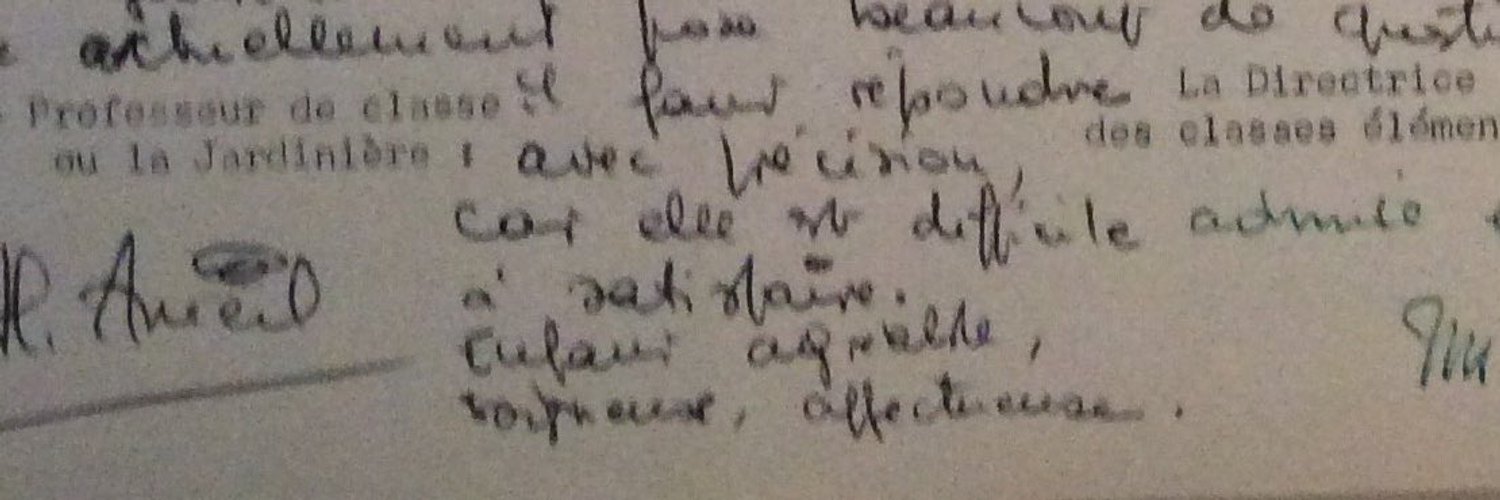 actuellement pose beaucoup de questi
Professeur de classe il faut répondre La Directrice
ou la Jardinière : avec précision, des classes élémen
car elle est difficile admise
à satisfaire.
Enfant agréable,
soigneuse, affectueuse.